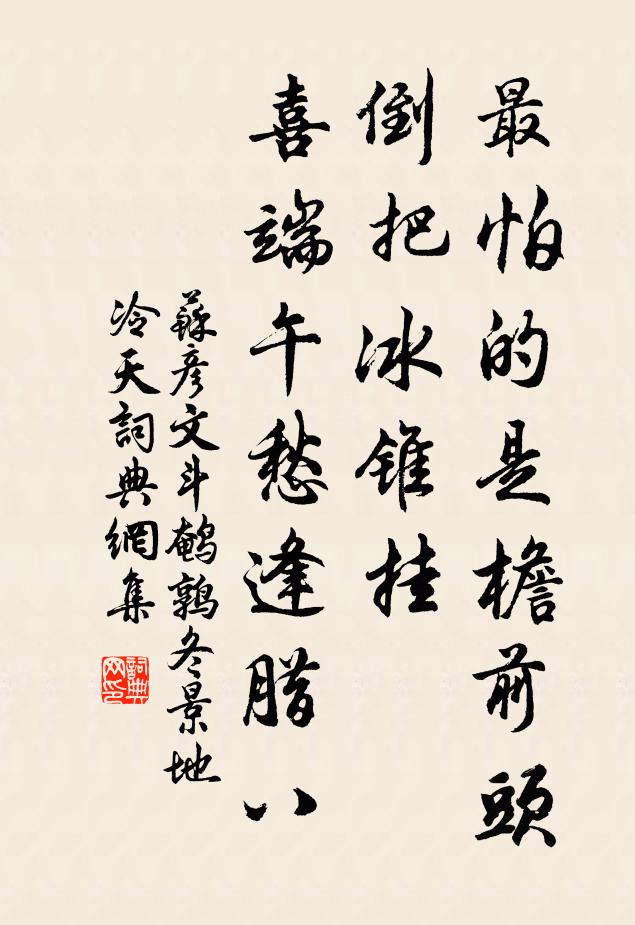 最怕的是檐前頭
倒把冰錐挂
喜端午愁逢腊八
蘇彦文斗鹌鹑冬景地
冷天詞典網集
詞典网印